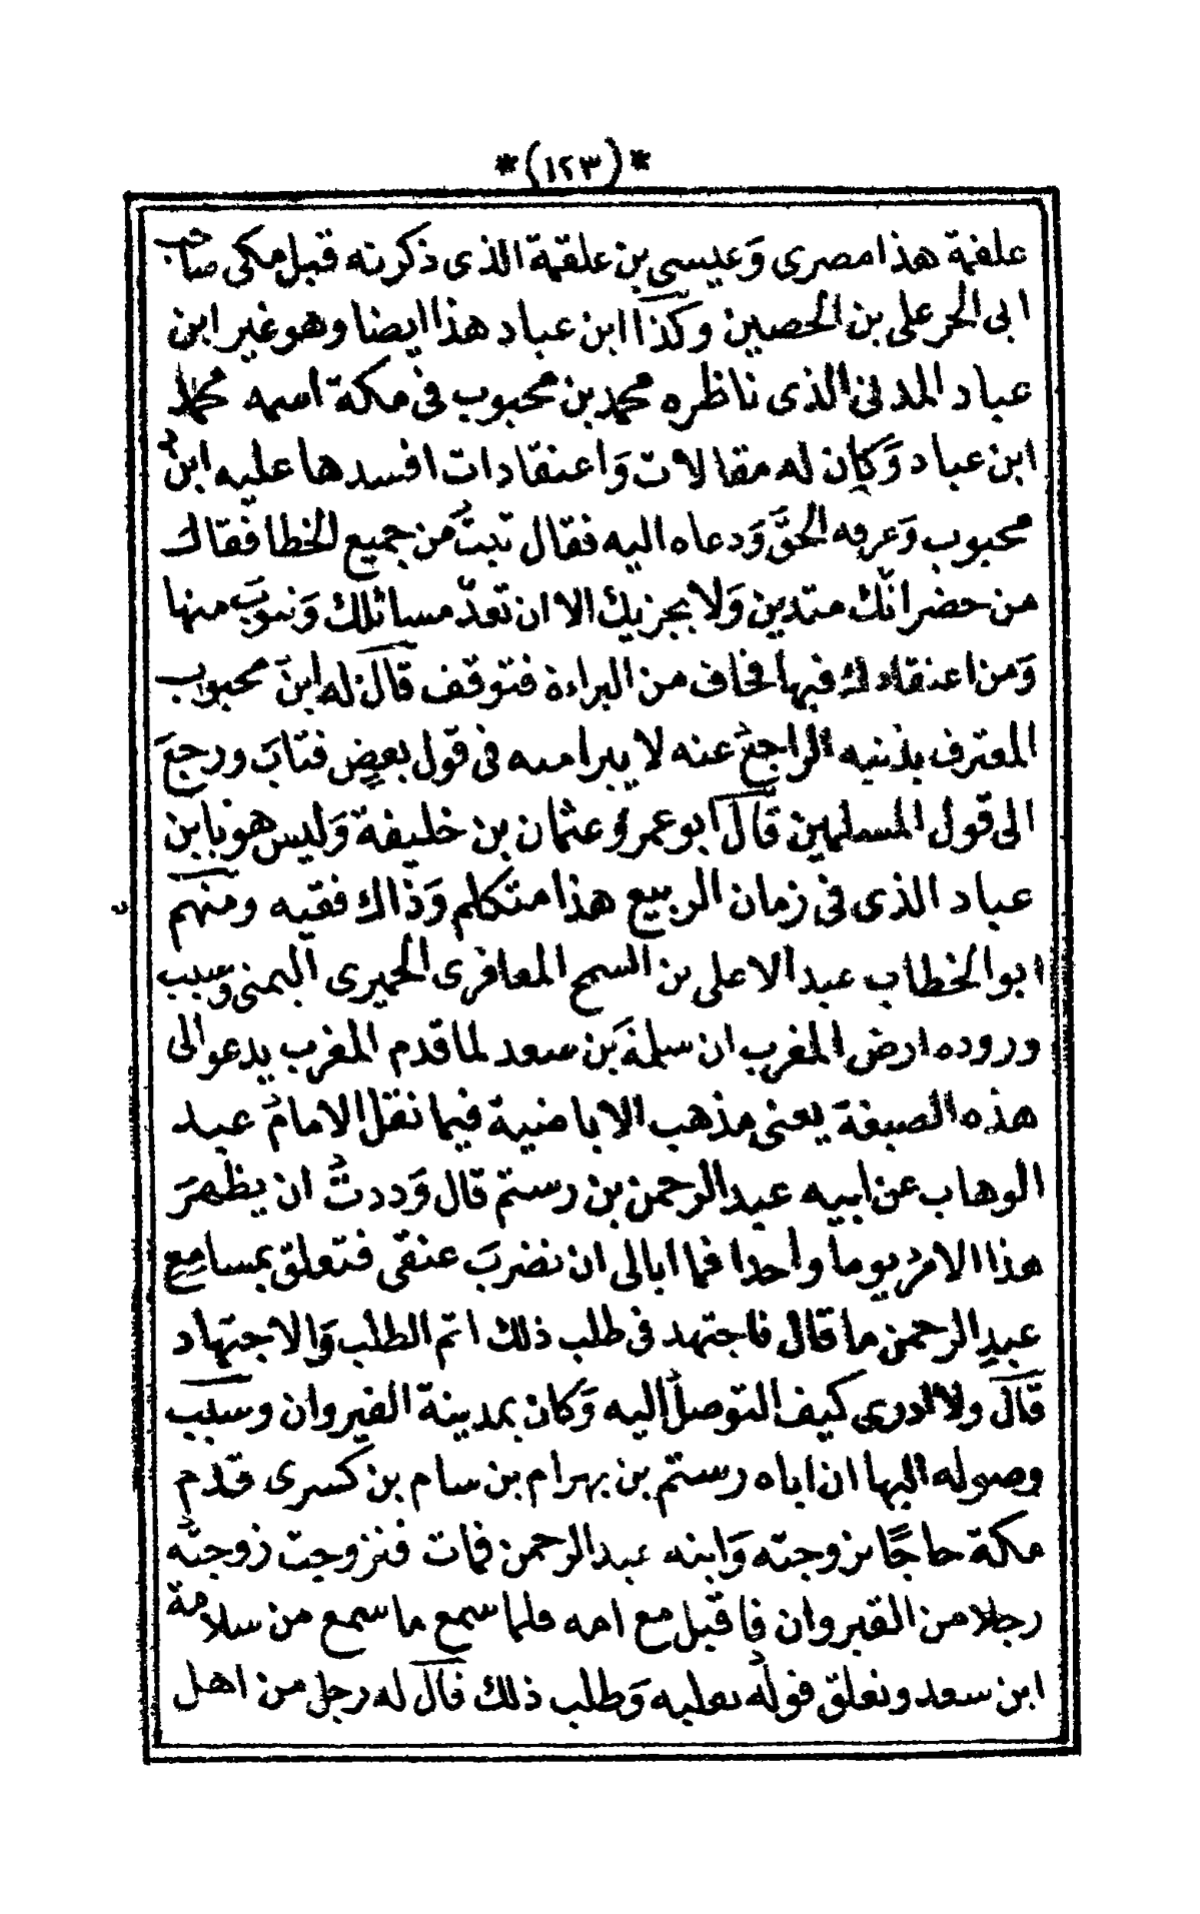 *(١٢٣)*
علقمة هذا مصرى وَعيسى بن علقمة الذى ذكرته قبل مكى صاحب
ابى الحر على بن الحصين وكذا ابن عباد هذا ايضا وهو غير ابن
عباد المدنى الذى ناظره محمد بن محبوب فى مكة اسمه محمد
ابن عباد وَكان له مقالات وَاعتقادات افسدها عليه ابن
محبوب وَعرفه الحقَّ وَدعاه اليه فقال تبتُ من جميع الخطا فقال
من حضر انّك متدين وَلا يجزيك الا ان تعدّ مسائلك وَتتوبَ منها
وَمن اعتقادك فيها فخاف من البراءة فتوقف قال له ابن محبوب
المعترف بذنبه الراجعُ عنه لا يبرا منه فى قول بعضٍ فتابَ ورجعَ
الى قول المسلمين قال ابو عمرو عثمان بن خليفة وَليس هو بابن
عباد الذى فى زمان الربيع هذا متكلم وَذاك فقيه ومنهم
ابو الخطاب عبد الاعلى بن السمح المعافرى الحميرى اليمنى وسبب
وروده ارض المغرب ان سلمة بن سعد لما قدم المغرب يدعو الى
هذه الصبغة يعنى مذهب الاباضية فيما نقل الامامُ عبد
الوهاب عن ابيه عبد الرحمن بن رستم قال وَددتُ ان يظهرَ
هذا الامرُ يوما واحدا فما ابالى ان تضربَ عنقى فتعلق بمسامِعِ
عبدِ الرحمن ما قال فاجتهد فى طلب ذلك اتم الطلب وَالاجتهاد
قال ولا ادرى كيف التوصلُ اليه وَكان بمدينة القيروان وسبب
وصوله اليها ان اباه رستم بن بهرام بن سام بن كسرى قدم
مكة حاجًا بزوجته وَابنه عبد الرحمن فمات فتزوجت زوجتُه
رجلا من القيروان فاقبل مع امه فلما سمع ما سمع من سلامة
ابن سعد وتعلق قولُه بقلبه وَطلب ذلك قال له رجل من اهل